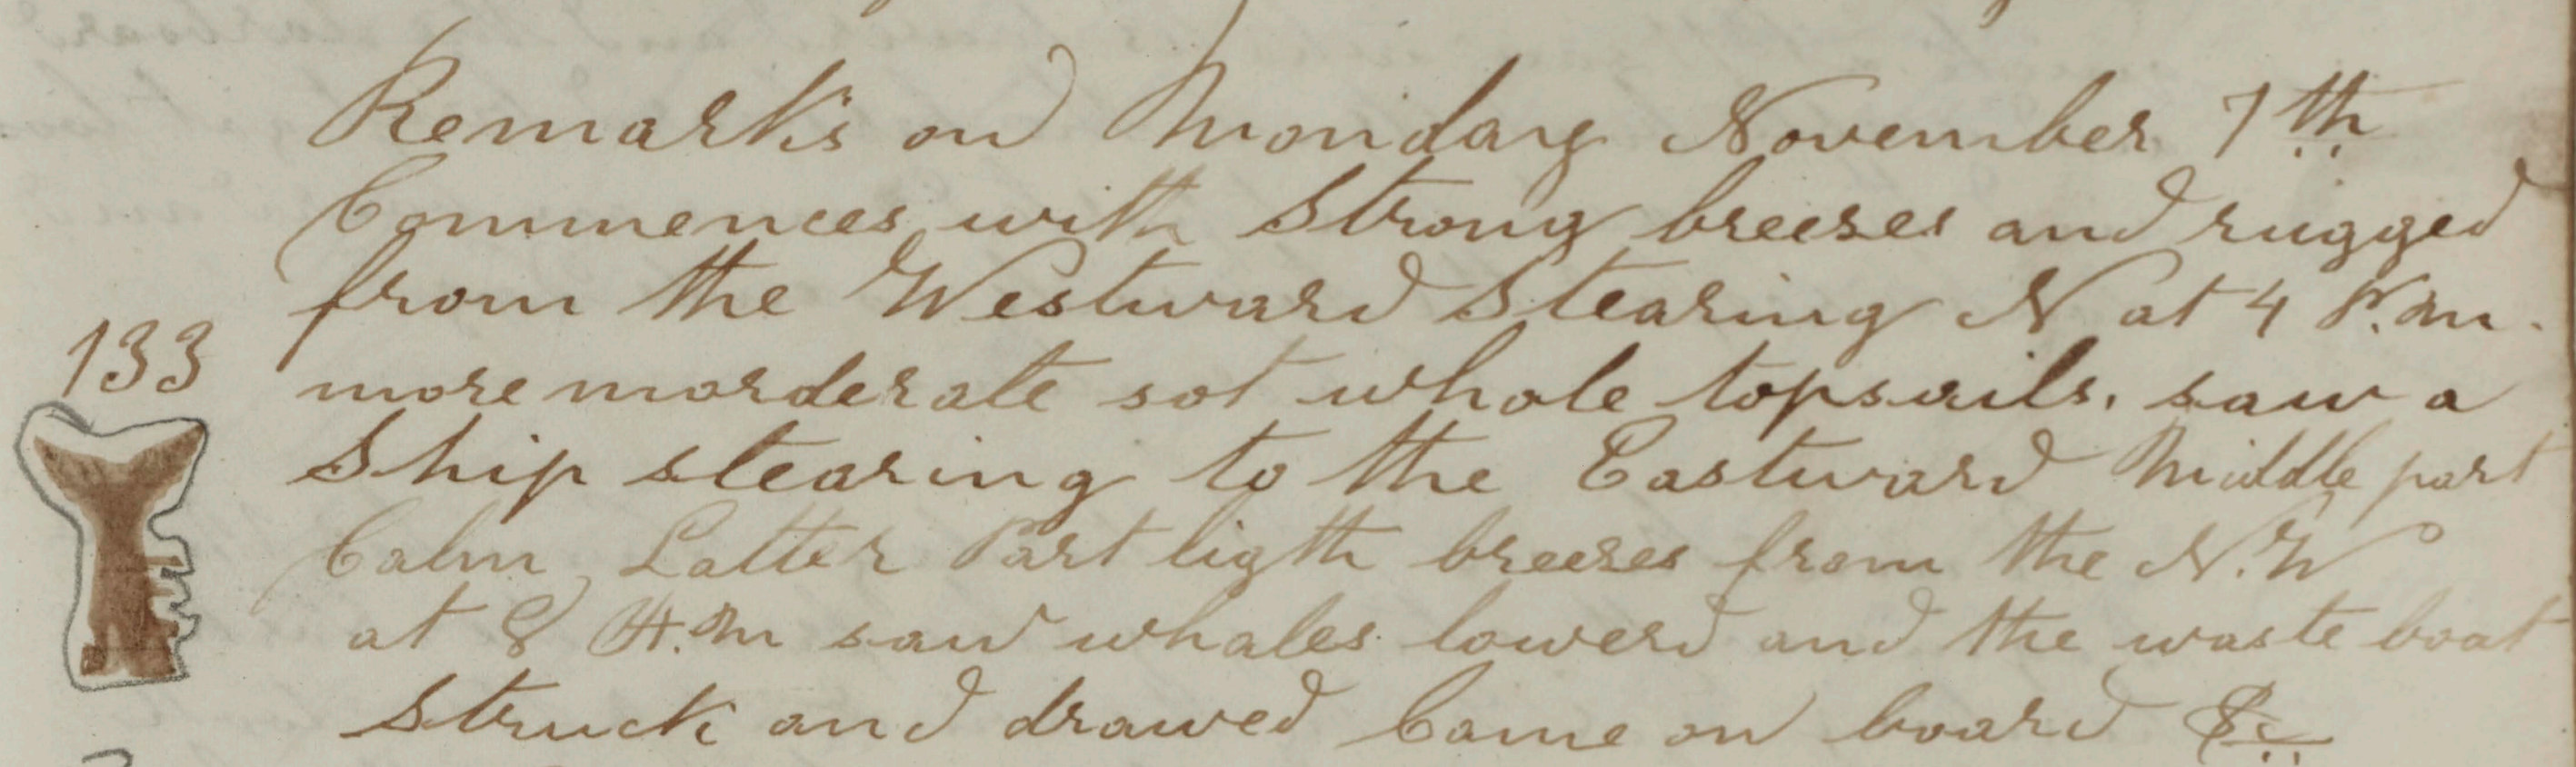 Remarks on Monday November 7th
Commences with Strong breeses and rugged
from the Westward Stearing N at 4 P.m.
133
more marderate sot whole topsails. saw a
Ship stearing to the Eastward Middle part
Calm, Latter Part ligth breeses from the N.W
at 8 A.M saw whales lowerd and the waste boat
Struck and drawed Came on board &c